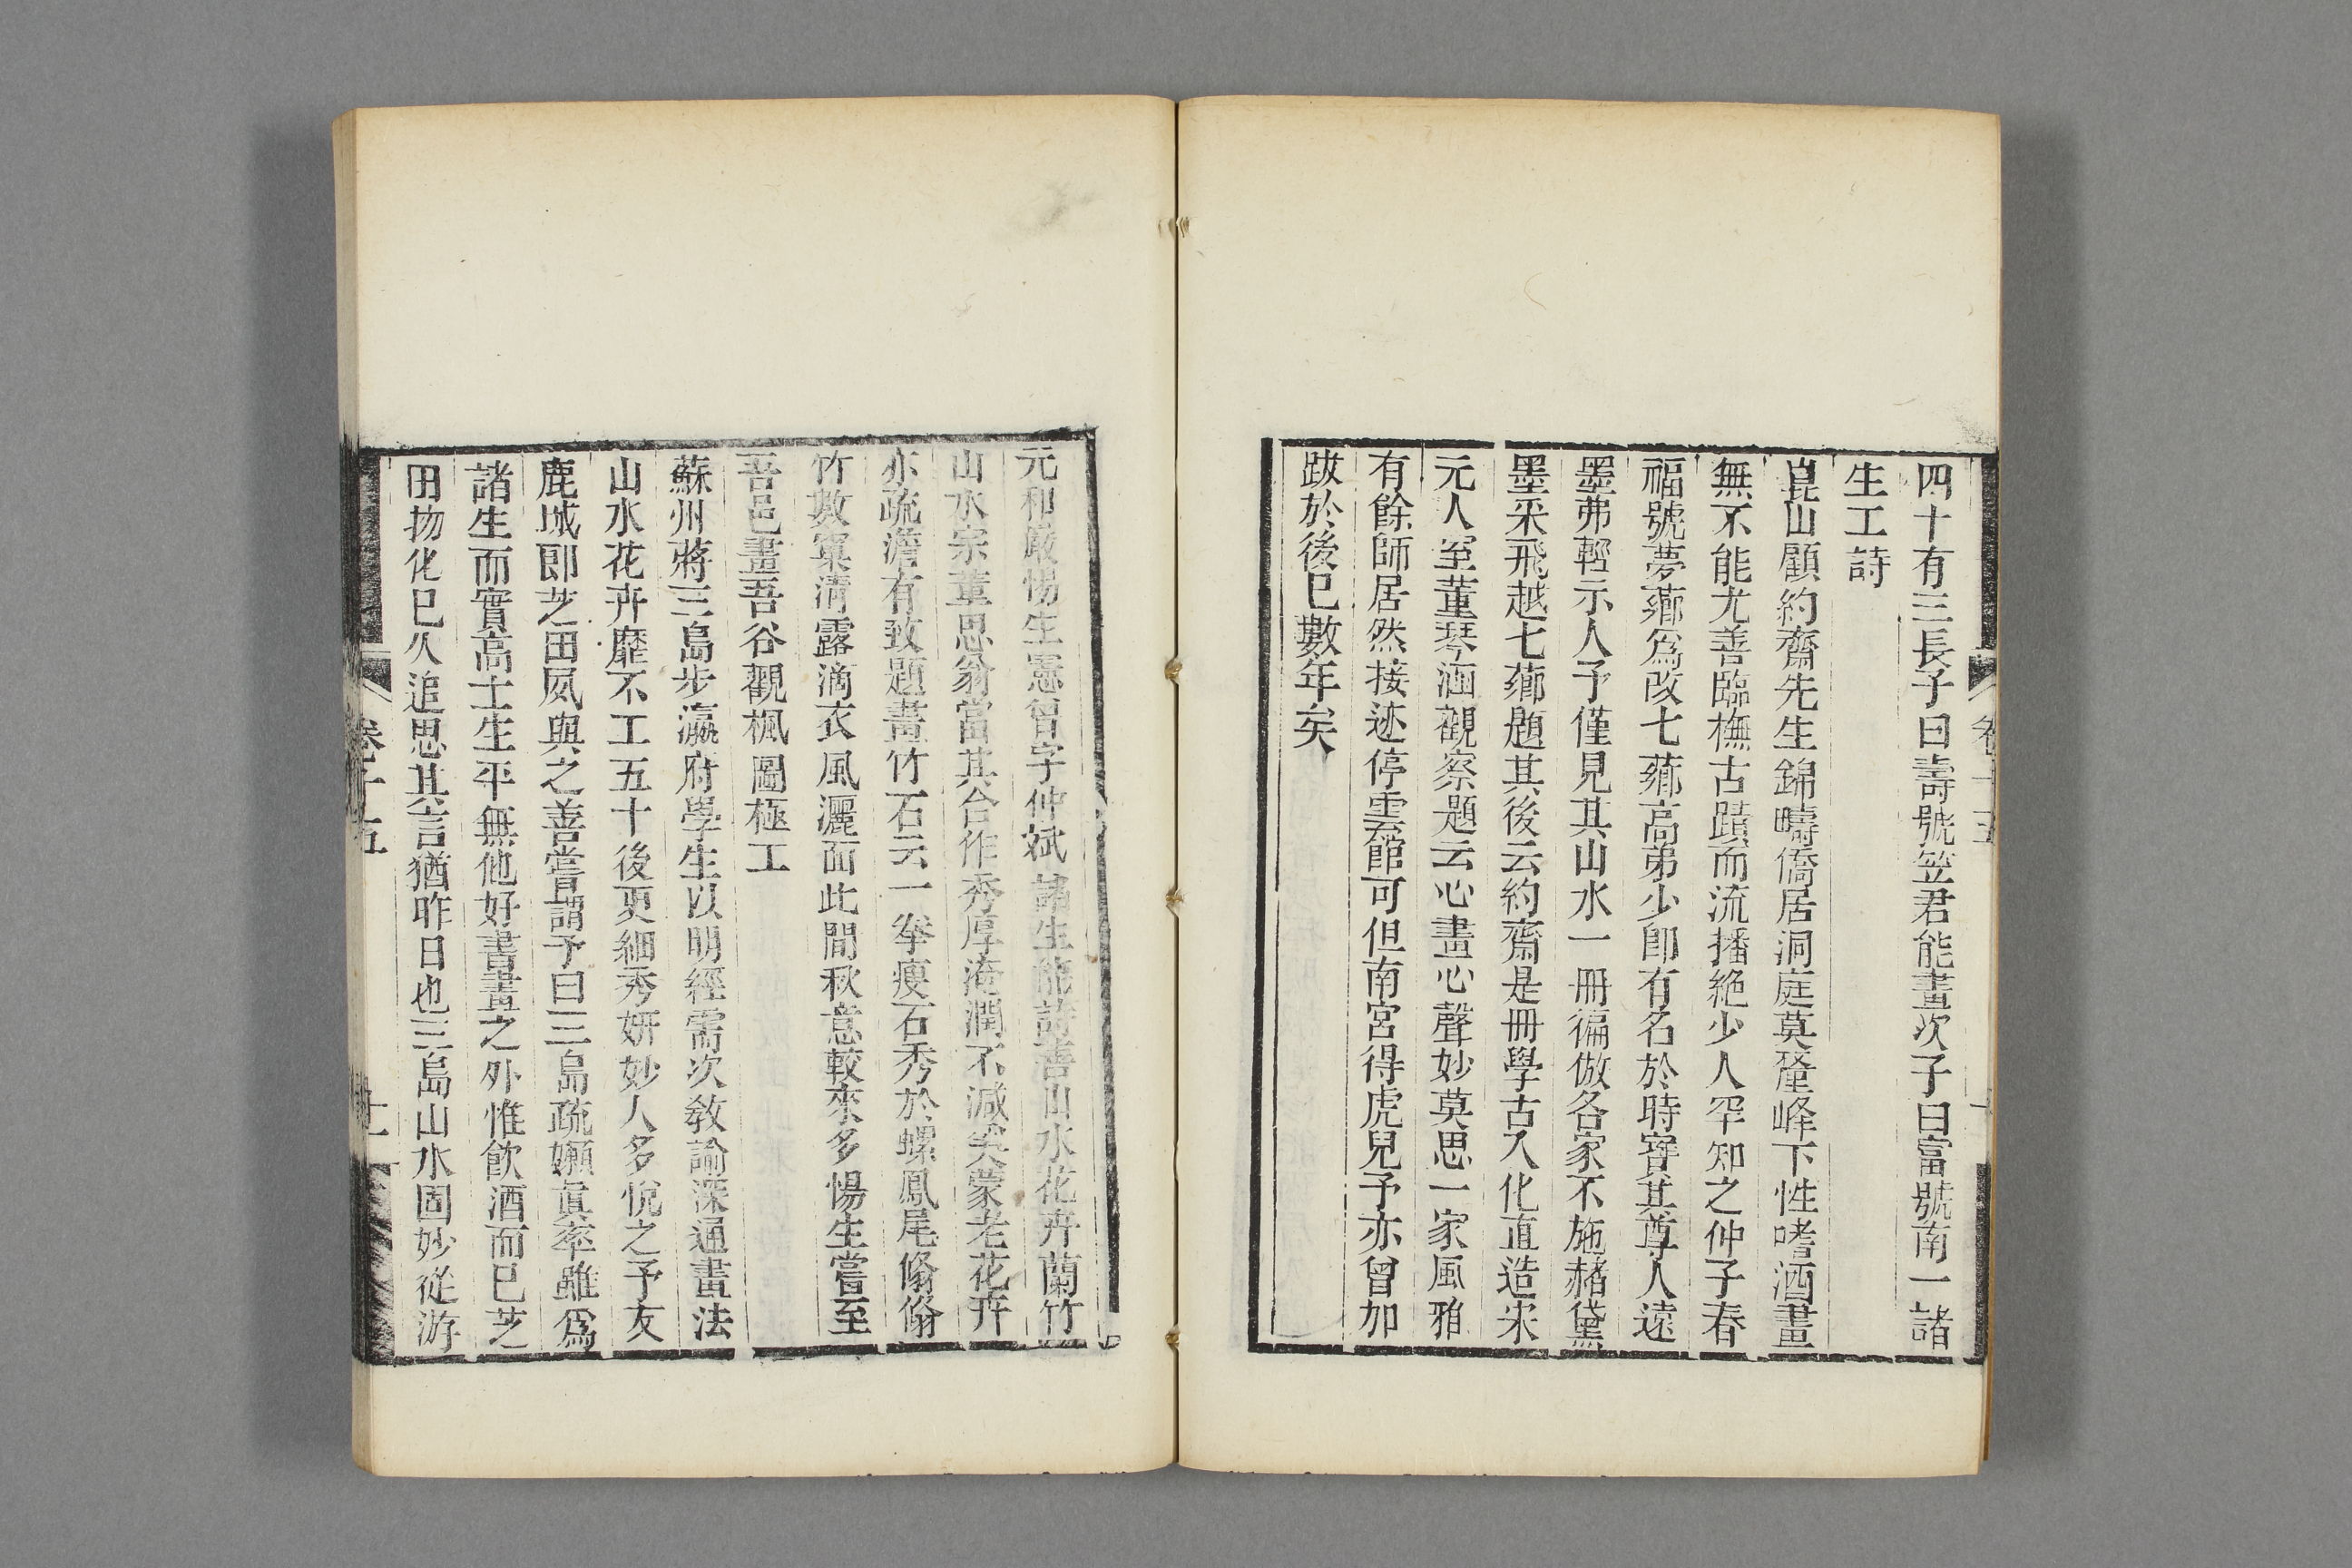 四十有三長子曰壽號笠君能畫次子曰富號南一諸
生工詩
崑山顧約齋先生錦疇僑居洞庭莫釐峰下性嗜酒畫
無不能尤善臨橅古蹟而流播絶少人罕知之仲子春
福號夢薌爲改七薌高弟少卽有名於時寶其尊人遠
墨弗輕示人予僅見其山水一册徧倣各家不施赭黛
墨采飛越七薌題其後云約齋是冊學古入化直造宋
元人室董琴涵觀察題云心畫心聲妙莫思一家風雅
有餘師居然接迹停雲館可但南宮得虎兒予亦曾加
跋於後巳數年矣
卷十五
元和嚴惕生憲曾字仲斌諸生能詩善山水花卉蘭竹
山水宗董思翁當其合作秀厚淹潤不減奚蒙老花卉
亦疏澹有致題畫竹石云一拳瘦石秀於螺鳳尾翛翛
竹數窠清露滴衣風灑面此間秋意較來多惕生嘗至
吾邑畫吾谷觀楓圖極工
蘇州蔣三島步瀛府學生以明經需次敎諭深通畫法
山水花卉靡不工五十後更細秀妍妙人多悅之予友
鹿城郞芝田夙與之善嘗謂予曰三島疏嬾眞率雖爲
諸生而實高士生平無他好書畫之外惟飮酒而巳芝
田物化巳久追思其言猶昨日也三島山水固妙從游
卷十五
十一